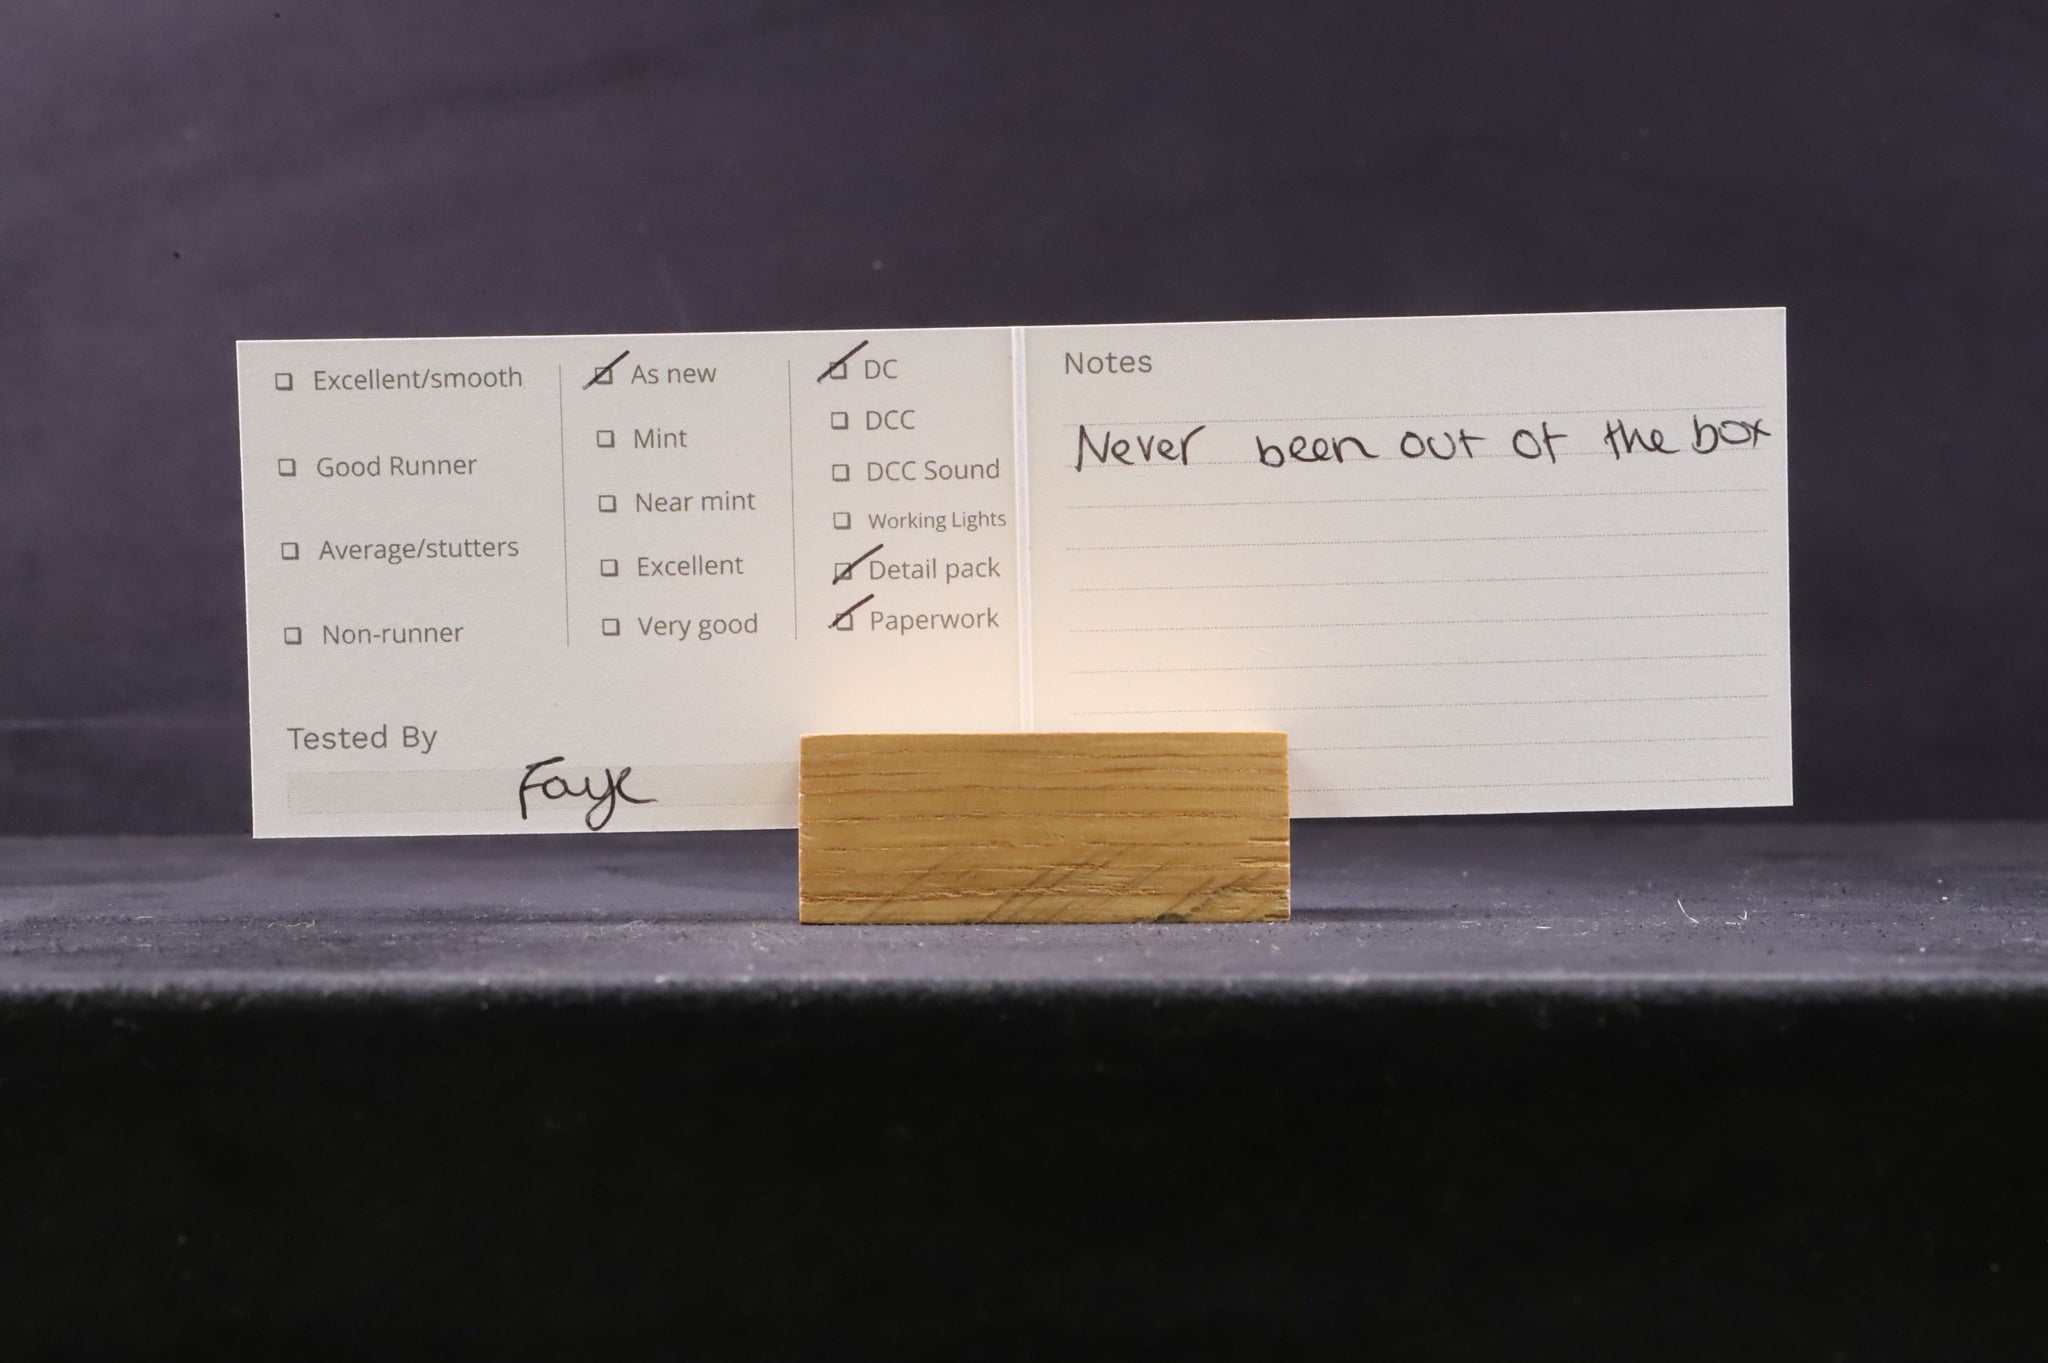 Excellent/smooth
Good Runner
Average/stutters
Non-runner
As new
Mint
Near mint
Excellent
Very good
DC
DCC
DCC Sound
Working Lights
Detail pack
Paperwork
Tested By
Faye
Notes
Never been out of the box